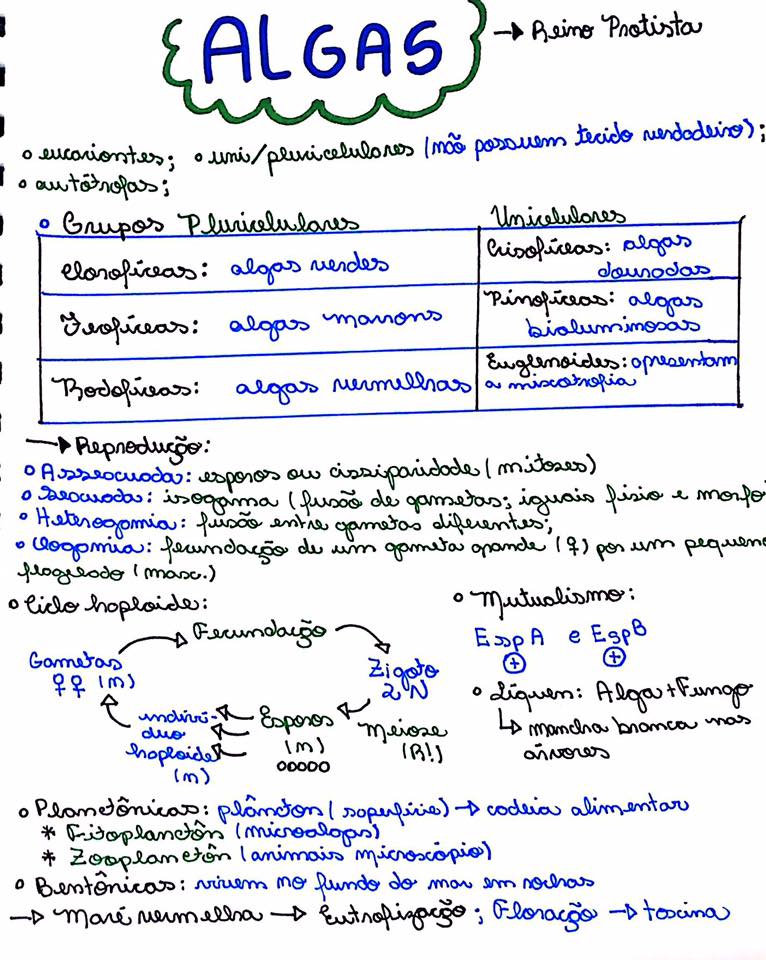 ALGAS → Reino Protista
o eucariontes; o uni/pluricelulares (não possuem tecido verdadeiro);
o autótrofas;
o Grupos Pluricelulares
Unicelulares
Clorofíceas: algas verdes
Crisofíceas: algas
douradas
Feofíceas: algas marrons
Pirrofíceas: algas
bioluminosas
Rodofíceas: algas vermelhas
Euglenoides: apresentam
a mixotrofia
→ Reprodução:
o Assexuada: esporos ou cissiparidade (mitoses)
o Sexuada: isogamia (fusão de gametas; iguais fisio e morfo
o Heterogamia: fusão entre gametas diferentes;
o Oogamia: fecundação de um gameta grande (♀) por um pequeno
flagelado (masc.)
o Ciclo haploide:
Fecundação
Gametas
♀ ♀ (n)
Zigoto
2N
Meiose
(R!)
Esporos
(n)
00000
indiví-
duo
haploide
(n)
o Mutualismo:
Esp A e Esp B
+ +
o Líquen: Alga + Fungo
↳ mancha branca nas
árvores
o Planctônicas: plâncton (superfície) → cadeia alimentar
* Fitoplanctôn (microalgas)
* Zooplanctôn (animais microscópio)
o Bentônicas: vivem no fundo do mar em rochas
→ Maré vermelha → Eutrofização; Floração → toxina